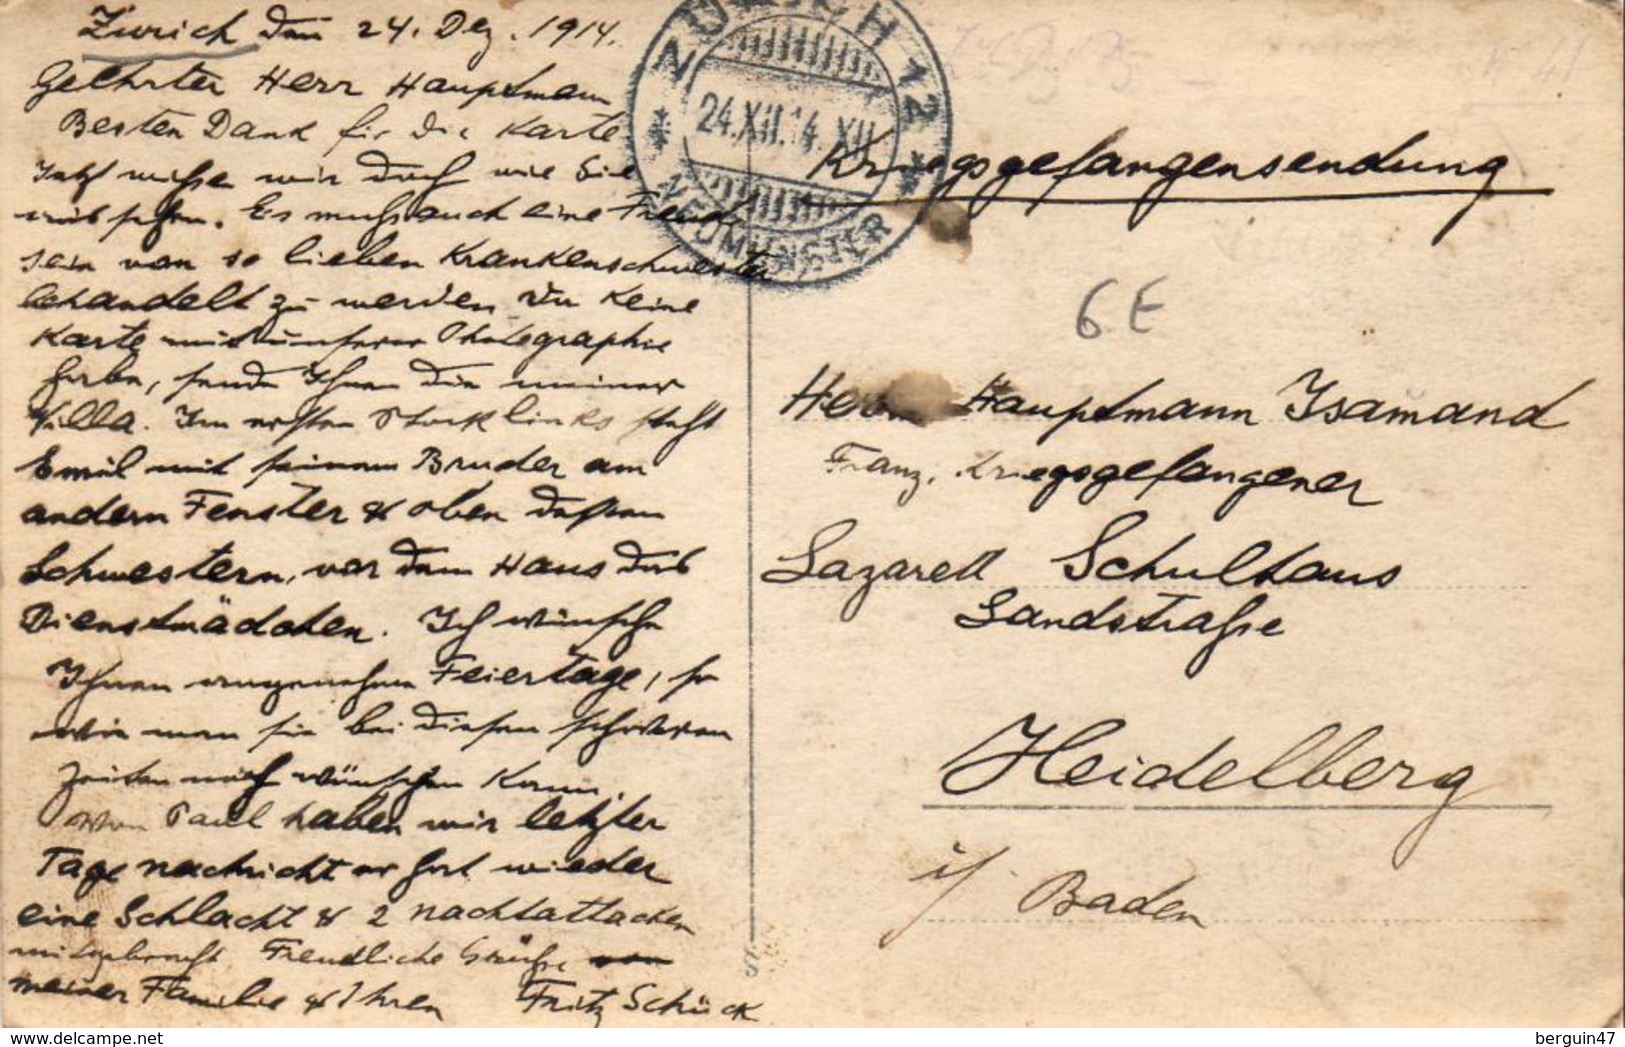 Zürich den 24. Dez. 1914.
Geehrter Herr Hauptmann
Besten Dank für die Karte
Jetzt wissen wir doch wie Sie
aussehen. Es muss auch eine Freude
sein von so lieben Krankenschwester
behandelt zu werden. Da keine
Karte mit unserer Photographie
habe, sende Ihnen die meiner
Villa. Im ersten Stock links steht
Emil mit seinem Bruder am
andern Fenster & oben dessen
Schwestern, vor dem Haus das
Dienstmädchen. Ich wünsche
Ihnen angenehme Feiertage, so
wie man sie bei diesen schweren
Zeiten noch wünschen kann.
Von Paul haben wir letzter
Tage nachricht er hat wieder
eine Schlacht & 2 nachtattacken
mitgebracht Freundliche Grüsse von
meiner Familie & Ihren Fritz Schück
ZÜRICH 12
24.XII.14. XII
NEUMÜNSTER
Kriegsgefangensendung
6 E
Herrn Hauptmann Isamand
Franz. Kriegsgefangener
Lazarett Schulhaus
Landstraße
Heidelberg
i/ Baden
berguin47